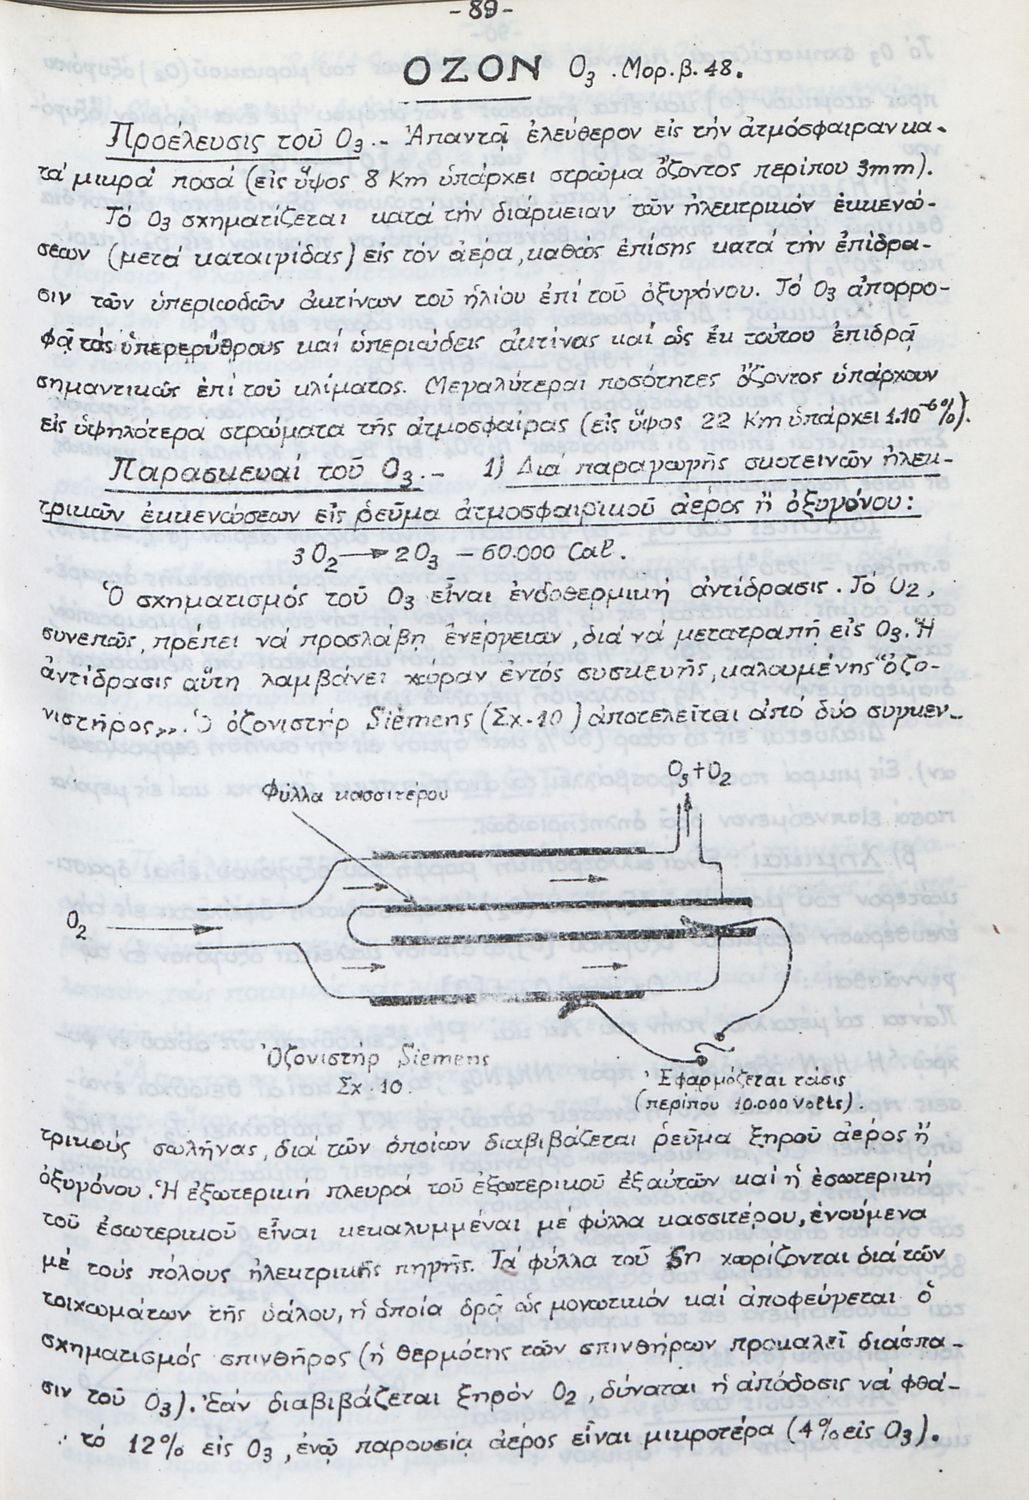 -89-
ΟΖΟΝ Ο3 . Μορ. β. 48.
Προέλευσις τοῦ Ο3 .- Ἀπαντᾷ ἐλεύθερον εἰς τήν ἀτμόσφαιραν κα-
τά μικρά ποσά (εἰς ὕψος 8 Km ὑπάρχει στρῶμα ὄζοντος περίπου 3mm).
Τό Ο3 σχηματίζεται κατά τήν διάρκειαν τῶν ἠλεκτρικῶν ἐκκενώ-
σεων (μετά καταιγίδας) εἰς τόν ἀέρα, καθώς ἐπίσης κατά τήν ἐπίδρα-
σιν τῶν ὑπεριωδῶν ἀκτίνων τοῦ ἡλίου ἐπί τοῦ ὀξυγόνου. Τό Ο3 ἀπορρο-
φᾷ τάς ὑπερερύθρους καί ὑπεριώδεις ἀκτίνας καί ὡς ἐκ τούτου ἐπιδρᾷ
σημαντικῶς ἐπί τοῦ κλίματος. Μεγαλύτεραι ποσότητες ὄζοντος ὑπάρχουν
εἰς ὑψηλότερα στρώματα τῆς ἀτμοσφαίρας (εἰς ὕψος 22 Km ὑπάρχει 1.10⁻⁶%).
Παρασκευαί τοῦ Ο3 .- 1) Διά παραγωγῆς σκοτεινῶν ἠλεκ-
τρικῶν ἐκκενώσεων εἰς ῥεῦμα ἀτμοσφαιρικοῦ ἀέρος ἤ ὀξυγόνου:
3 O2 → 2 O3 - 60.000 Cal.
Ὁ σχηματισμός τοῦ Ο3 εἶναι ἐνδοθερμική ἀντίδρασις. Τό Ο2,
συνεπῶς, πρέπει νά προσλάβη ἐνέργειαν, διά νά μετατραπῆ εἰς Ο3. Ἡ
ἀντίδρασις αὕτη λαμβάνει χώραν ἐντός συσκευῆς, καλουμένης "ὀζο-
νιστῆρος,,. Ὁ ὀζονιστήρ Siemens (Σχ-10) ἀποτελεῖται ἀπό δύο συγκεν-
O3 + O2
Φύλλα κασσιτέρου
O2
Ὀζονιστήρ Siemens
Σχ. 10.
Ἐφαρμόζεται τάσις
(περίπου 10.000 Volts).
τρικούς σωλήνας, διά τῶν ὁποίων διαβιβάζεται ῥεῦμα ξηροῦ ἀέρος ἤ
ὀξυγόνου. Ἡ ἐξωτερική πλευρά τοῦ ἐξωτερικοῦ ἐξ αὐτῶν καί ἡ ἐσωτερική
τοῦ ἐσωτερικοῦ εἶναι κεκαλυμμέναι μέ φύλλα κασσιτέρου, ἑνούμενα
μέ τούς πόλους ἠλεκτρικῆς πηγῆς. Τά φύλλα τοῦ Sn χωρίζονται διά τῶν
τοιχωμάτων τῆς ὑάλου, ἡ ὁποία δρᾷ ὡς μονωτικόν καί ἀποφεύγεται ὁ
σχηματισμός σπινθῆρος (ἡ θερμότης τῶν σπινθήρων προκαλεῖ διάσπα-
σιν τοῦ Ο3). Ἐάν διαβιβάζεται ξηρόν Ο2, δύναται ἡ ἀπόδοσις νά φθά-
τό 12% εἰς Ο3, ἐνῷ παρουσίᾳ ἀέρος εἶναι μικροτέρα (4% εἰς Ο3).